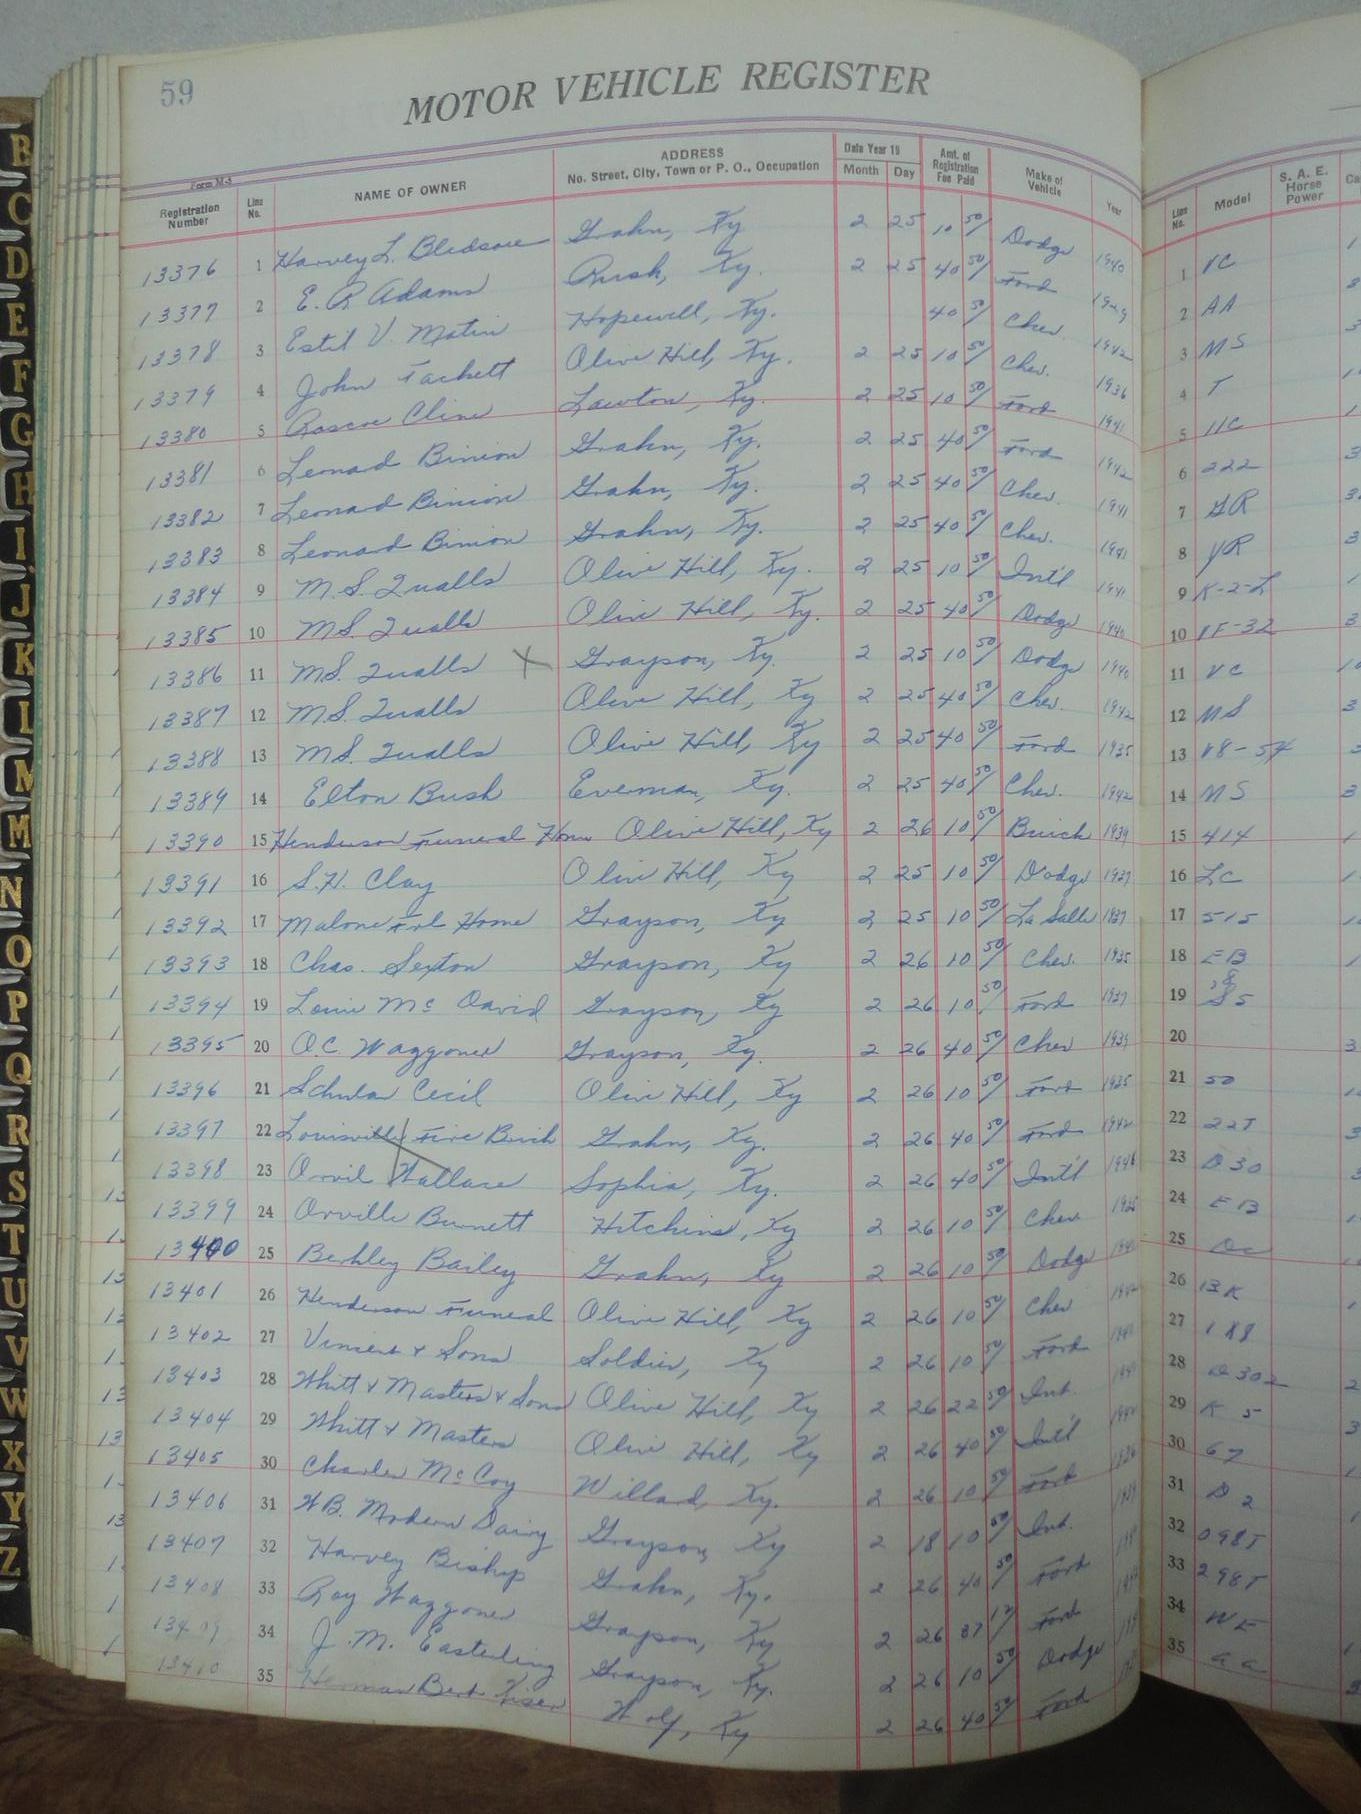 59
MOTOR VEHICLE REGISTER
Form M-5
Registration Number Line No. NAME OF OWNER ADDRESS No. Street, City, Town or P. O., Occupation Date Year 19 Month Day Amt. of Registration Fee Paid Make of Vehicle Year Line No. Model S. A. E. Horse Power Ca
13376 1 Harvey L. Bledsoe Grahn, Ky 2 25 10 50/ Dodge 1940 1 VC
13377 2 E. R. Adams Rush, Ky. 2 25 40 50/ Ford 1929 2 AA
13378 3 Estil V. Hopewell, Ky. 40 50/ Chev. 1942 3 MS
13379 4 John Tackett Olive Hill, Ky. 2 25 10 50/ Chev. 1936 4 T
13380 5 Roscoe Cline Lawton, Ky. 2 25 10 50/ Ford 1941 5 11C
13381 6 Lenard Binion Grahn, Ky. 2 25 40 50/ Ford 1942 6 222
13382 7 Leonard Binion Grahn, Ky. 2 25 40 50/ Chev. 1941 7
13383 8 Leonard Binion Grahn, Ky. 2 25 40 50/ Chev. 1941 8 YR
13384 9 M.S. Qualls Olive Hill, Ky. 2 25 10 50/ Int'l 1941 9 K-2-L
13385 10 M.S. Qualls Olive Hill, Ky. 2 25 40 50/ Dodge 1940 10 VF-32
13386 11 M.S. Qualls X Grayson, Ky. 2 25 10 50/ Dodge 1940 11 VC
13387 12 M.S. Qualls Olive Hill, Ky 2 25 40 50/ Chev. 1942 12 MS
13388 13 M.S. Qualls Olive Hill, Ky 2 25 40 50/ Ford 1935 13 V8-54
13389 14 Elton Bush Everman, Ky. 2 25 40 50/ Chev. 1942 14 MS
13390 15 Henderson Funeral Home Olive Hill, Ky 2 26 10 50/ Buick 1939 15 414
13391 16 S.H. Clay Olive Hill, Ky 2 25 10 50/ Dodge 1937 16 LC
13392 17 Malone Frl Home Grayson, Ky 2 25 10 50/ La Salle 1937 17 515
13393 18 Chas. Sexton Grayson, Ky 2 26 10 50/ Chev. 1935 18 EB
13394 19 Louie McDavid Grayson, Ky 2 26 10 50/ Ford 1937 19
13395 20 O.C. Waggoner Grayson, Ky. 2 26 40 50/ Chev 1939 20
13396 21 Cecil Olive Hill, Ky 2 26 10 50/ Ford 1935 21 50
13397 22 Louisville Fire Brick Grahn, Ky. 2 26 40 50/ Ford 1942 22 22T
13398 23 Orvil Wallace Sophia, Ky. 2 26 40 50/ Int'l 23 D30
13399 24 Orville Burnett Hitchins, Ky 2 26 10 50/ Chev 24 EB
13400 25 Berkley Bailey Grahn, Ky 2 26 10 50/ Dodge 25
13401 26 Henderson Funeral Olive Hill, Ky 2 26 10 50/ Chev 26 BK
13402 27 Vincent & Sons Soldier, Ky 2 26 10 50/ Ford 27
13403 28 Whitt & Masters & Sons Olive Hill, Ky 2 26 22 50/ Int. 28 D302
13404 29 Whitt & Masters Olive Hill, Ky 2 26 40 50/ Int'l 29 K 5
13405 30 Charles McCoy Willard, Ky. 2 26 10 50/ Ford 30 67
13406 31 W.B. Modern Dairy Grayson, Ky 2 18 10 50/ Int. 31 D 2
13407 32 Harvey Bishop Grahn, Ky. 2 26 40 50/ Ford 32 098T
13408 33 Roy Waggoner Grayson, Ky 2 26 87 17 Ford 33 298T
13409 34 J. M. Easterling Grayson, Ky. 2 26 10 50/ Dodge 34
13410 35 Herman Bert Kiser Wolf, Ky 2 26 40 50/ Ford 35 aa
B
C
D
E
F
G
H
I
J
K
L
M
M
N
O
P
Q
R
S
T
U
V
W
X
Y
Z